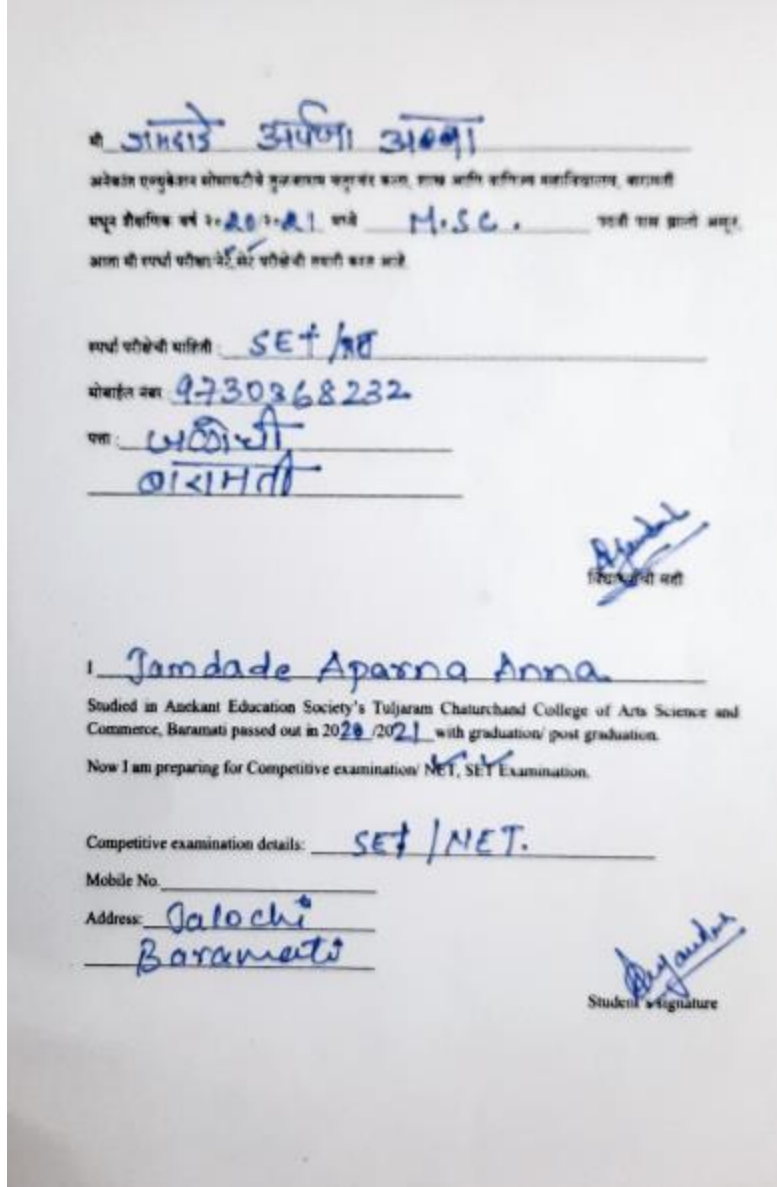 मी जामदाडे अर्पणा अण्णा
अनेकांत एज्युकेशन सोसायटीचे तुळजाराम चतुरचंद कला, शास्त्र आणि वाणिज्य महाविद्यालय, बारामती
मधून शैक्षणिक वर्ष २०20/२०21 मध्ये M.SC. पदवी पास झालो असून,
आता मी स्पर्धा परीक्षा/नेट, सेट परीक्षेची तयारी करत आहे.
स्पर्धा परीक्षेची माहिती : SET /
मोबाईल नंबर 9730368232
पत्ता : जळोची
बारामती
विद्यार्थ्याची सही
I Jamdade Aparna Anna
Studied in Anekant Education Society's Tuljaram Chaturchand College of Arts Science and
Commerce, Baramati passed out in 2020 /2021 with graduation/ post graduation.
Now I am preparing for Competitive examination/ NET, SET Examination.
Competitive examination details: SET / NET.
Mobile No.
Address: Jalochi
Baramati
Student's signature